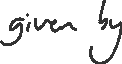 given by